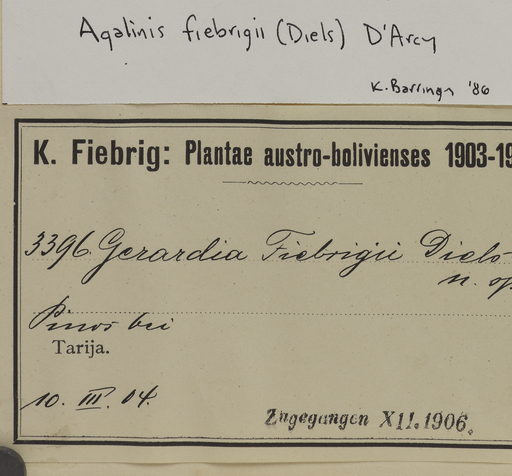 Agalinis fiebrigii (Diels) D'Arcy
K. Barringer '86
K. Fiebrig: Plantae austro-bolivienses 1903-19
3396. Gerardia Fiebrigii Diels
n. sp
Pinos bei
Tarija.
10. III. 04.
Zugegangen XII. 1906.